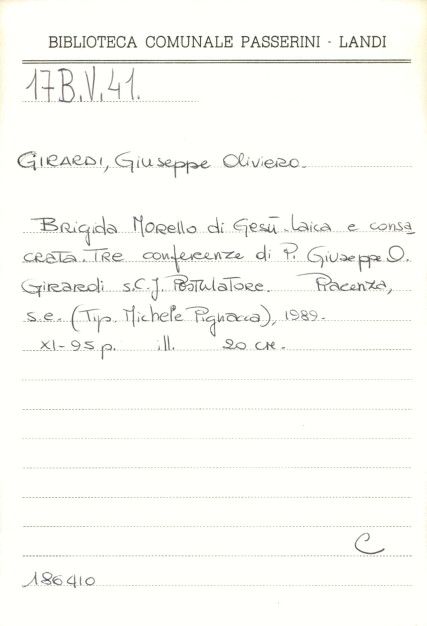 BIBLIOTECA COMUNALE PASSERINI - LANDI
17B.V.41.
GIRARDI, Giuseppe Oliviero.
Brigida Morello di Gesù. Laica e consa
crata. Tre conferenze di P. Giuseppe O.
Girardi s.C.J. Postulatore. Piacenza,
s.e. (Tip. Michele Pignacca), 1989.
XI-95 p. ill. 20 cm.
C
186410